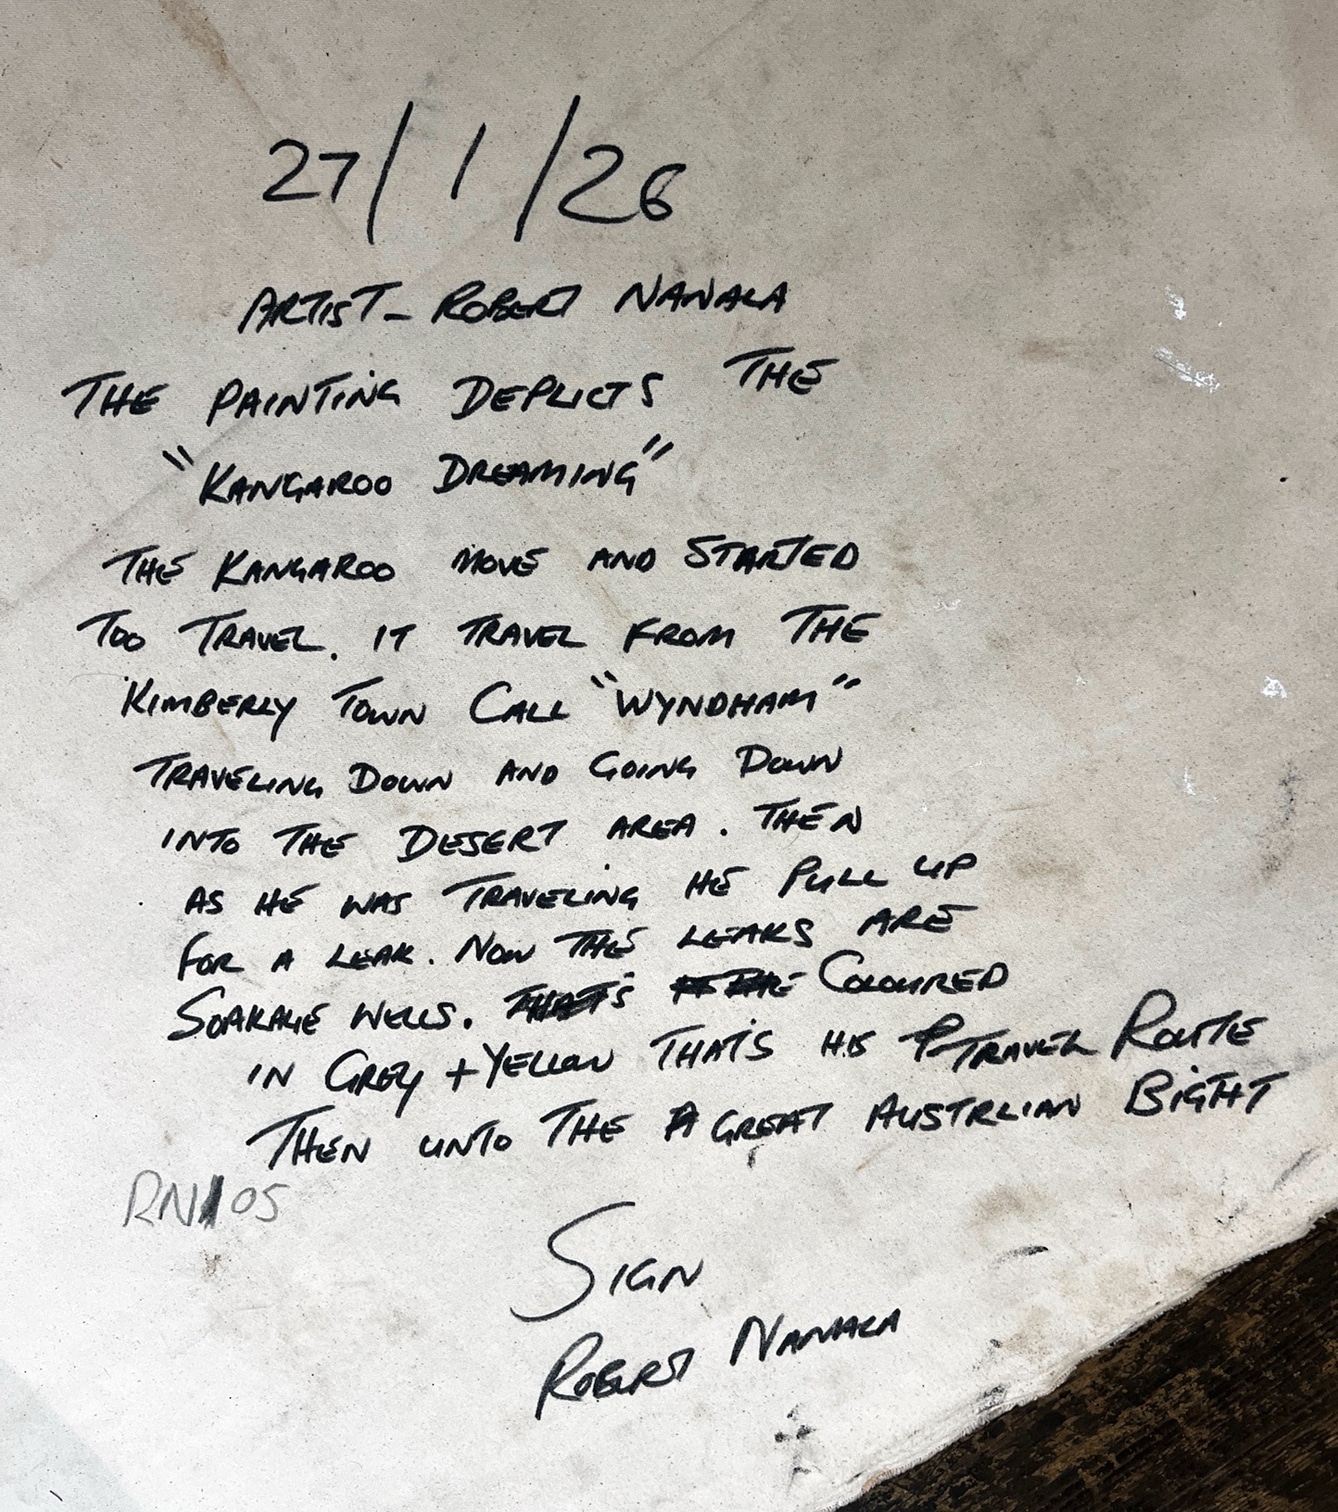 27/1/26
ARTIST - ROBERT NANALA
THE PAINTING DEPLICTS THE
"KANGAROO DREAMING"
THE KANGAROO MOVE AND STARTED
TOO TRAVEL. IT TRAVEL FROM THE
KIMBERLY TOWN CALL "WYNDHAM"
TRAVELING DOWN AND GOING DOWN
INTO THE DESERT AREA. THEN
AS HE WAS TRAVELING HE PULL UP
FOR A LEAK. NOW THE LEAKS ARE
SOAKAGE WELLS. COLOURED
IN GREY + YELLOW THAT'S HIS TRAVEL ROUTE
THEN UNTO THE GREAT AUSTRLIAN BIGHT
RN105
SIGN
ROBERT NANALA